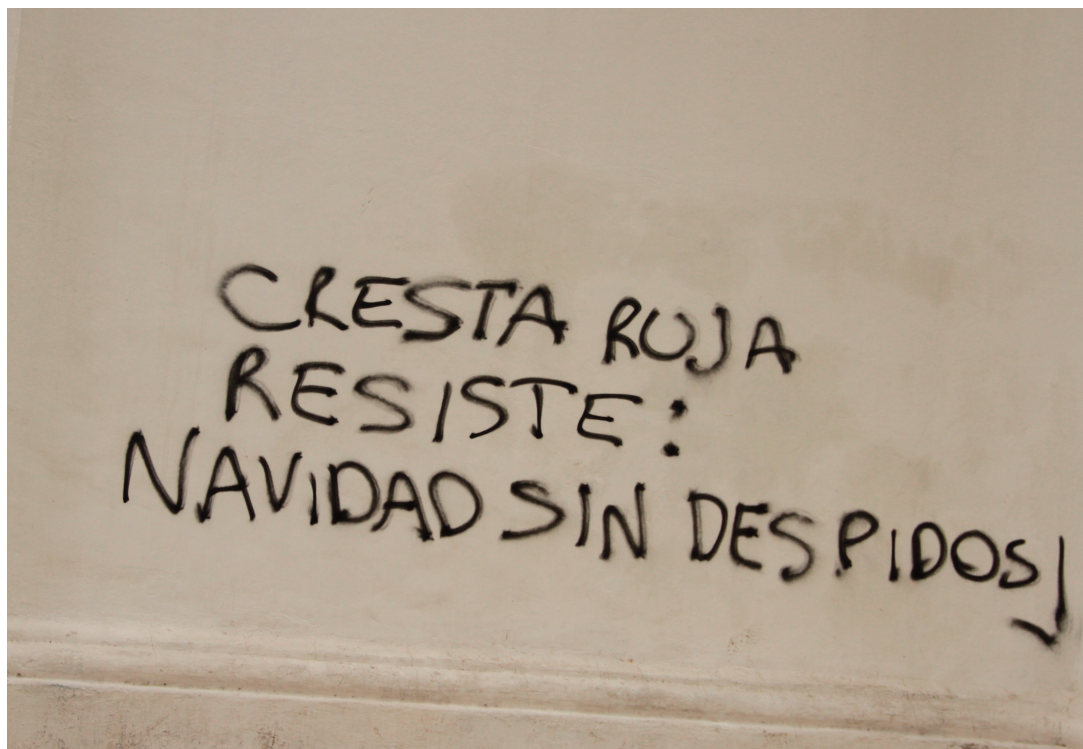 CRESTA ROJA
RESISTE:
NAVIDAD SIN DESPIDOS!